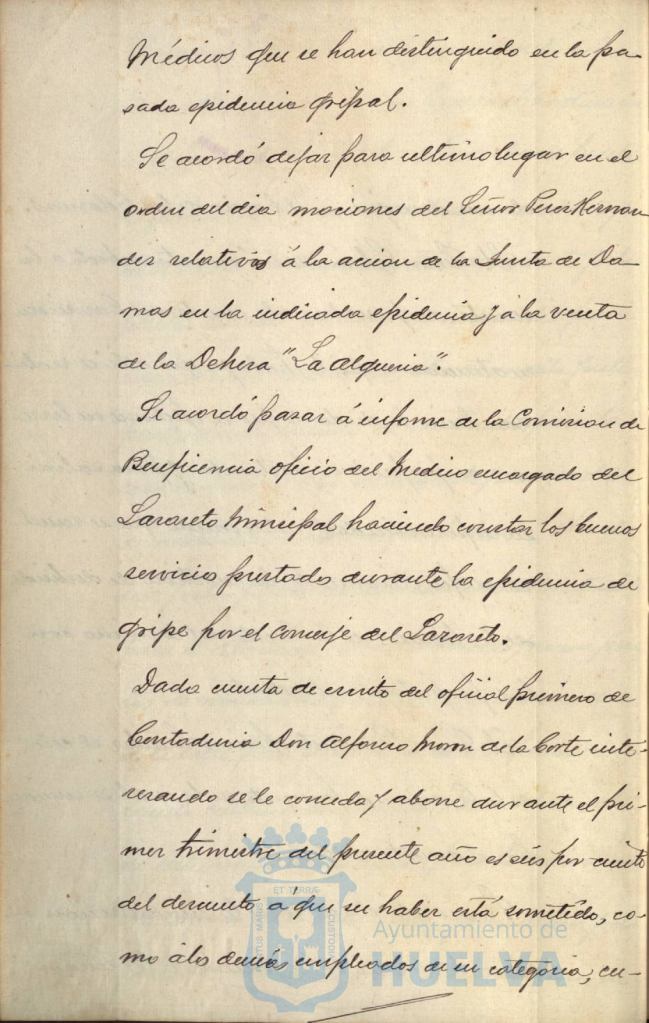 Médicos que se han distinguido en la pa-
sada epidemia gripal.
Se acordó dejar para ultimo lugar en el
orden del dia mociones del Señor Perez Hernan
dez relativas á la accion de la Junta de Da
mas en la indicada epidemia y á la venta
de la Dehesa "La Alqueria".
Se acordó pasar á informe de la Comision de
Beneficencia oficio del Medico encargado del
Lazareto Municipal haciendo constar los buenos
servicio prestado durante la epidemia de
gripe por el Conserje del Lazareto.
Dada cuenta de escrito del oficial primero de
Contaduria Don Alfonso Moron de la Corte inte-
resando se le conceda y abone durante el pri-
mer trimestre del presente año el seis por ciento
del descuento á que su haber está sometido, co-
mo á los demás empleados de su categoria, cu-
ET TERRÆ
CUSTODIA
PORTUS MARIS
Ayuntamiento de
HUELVA